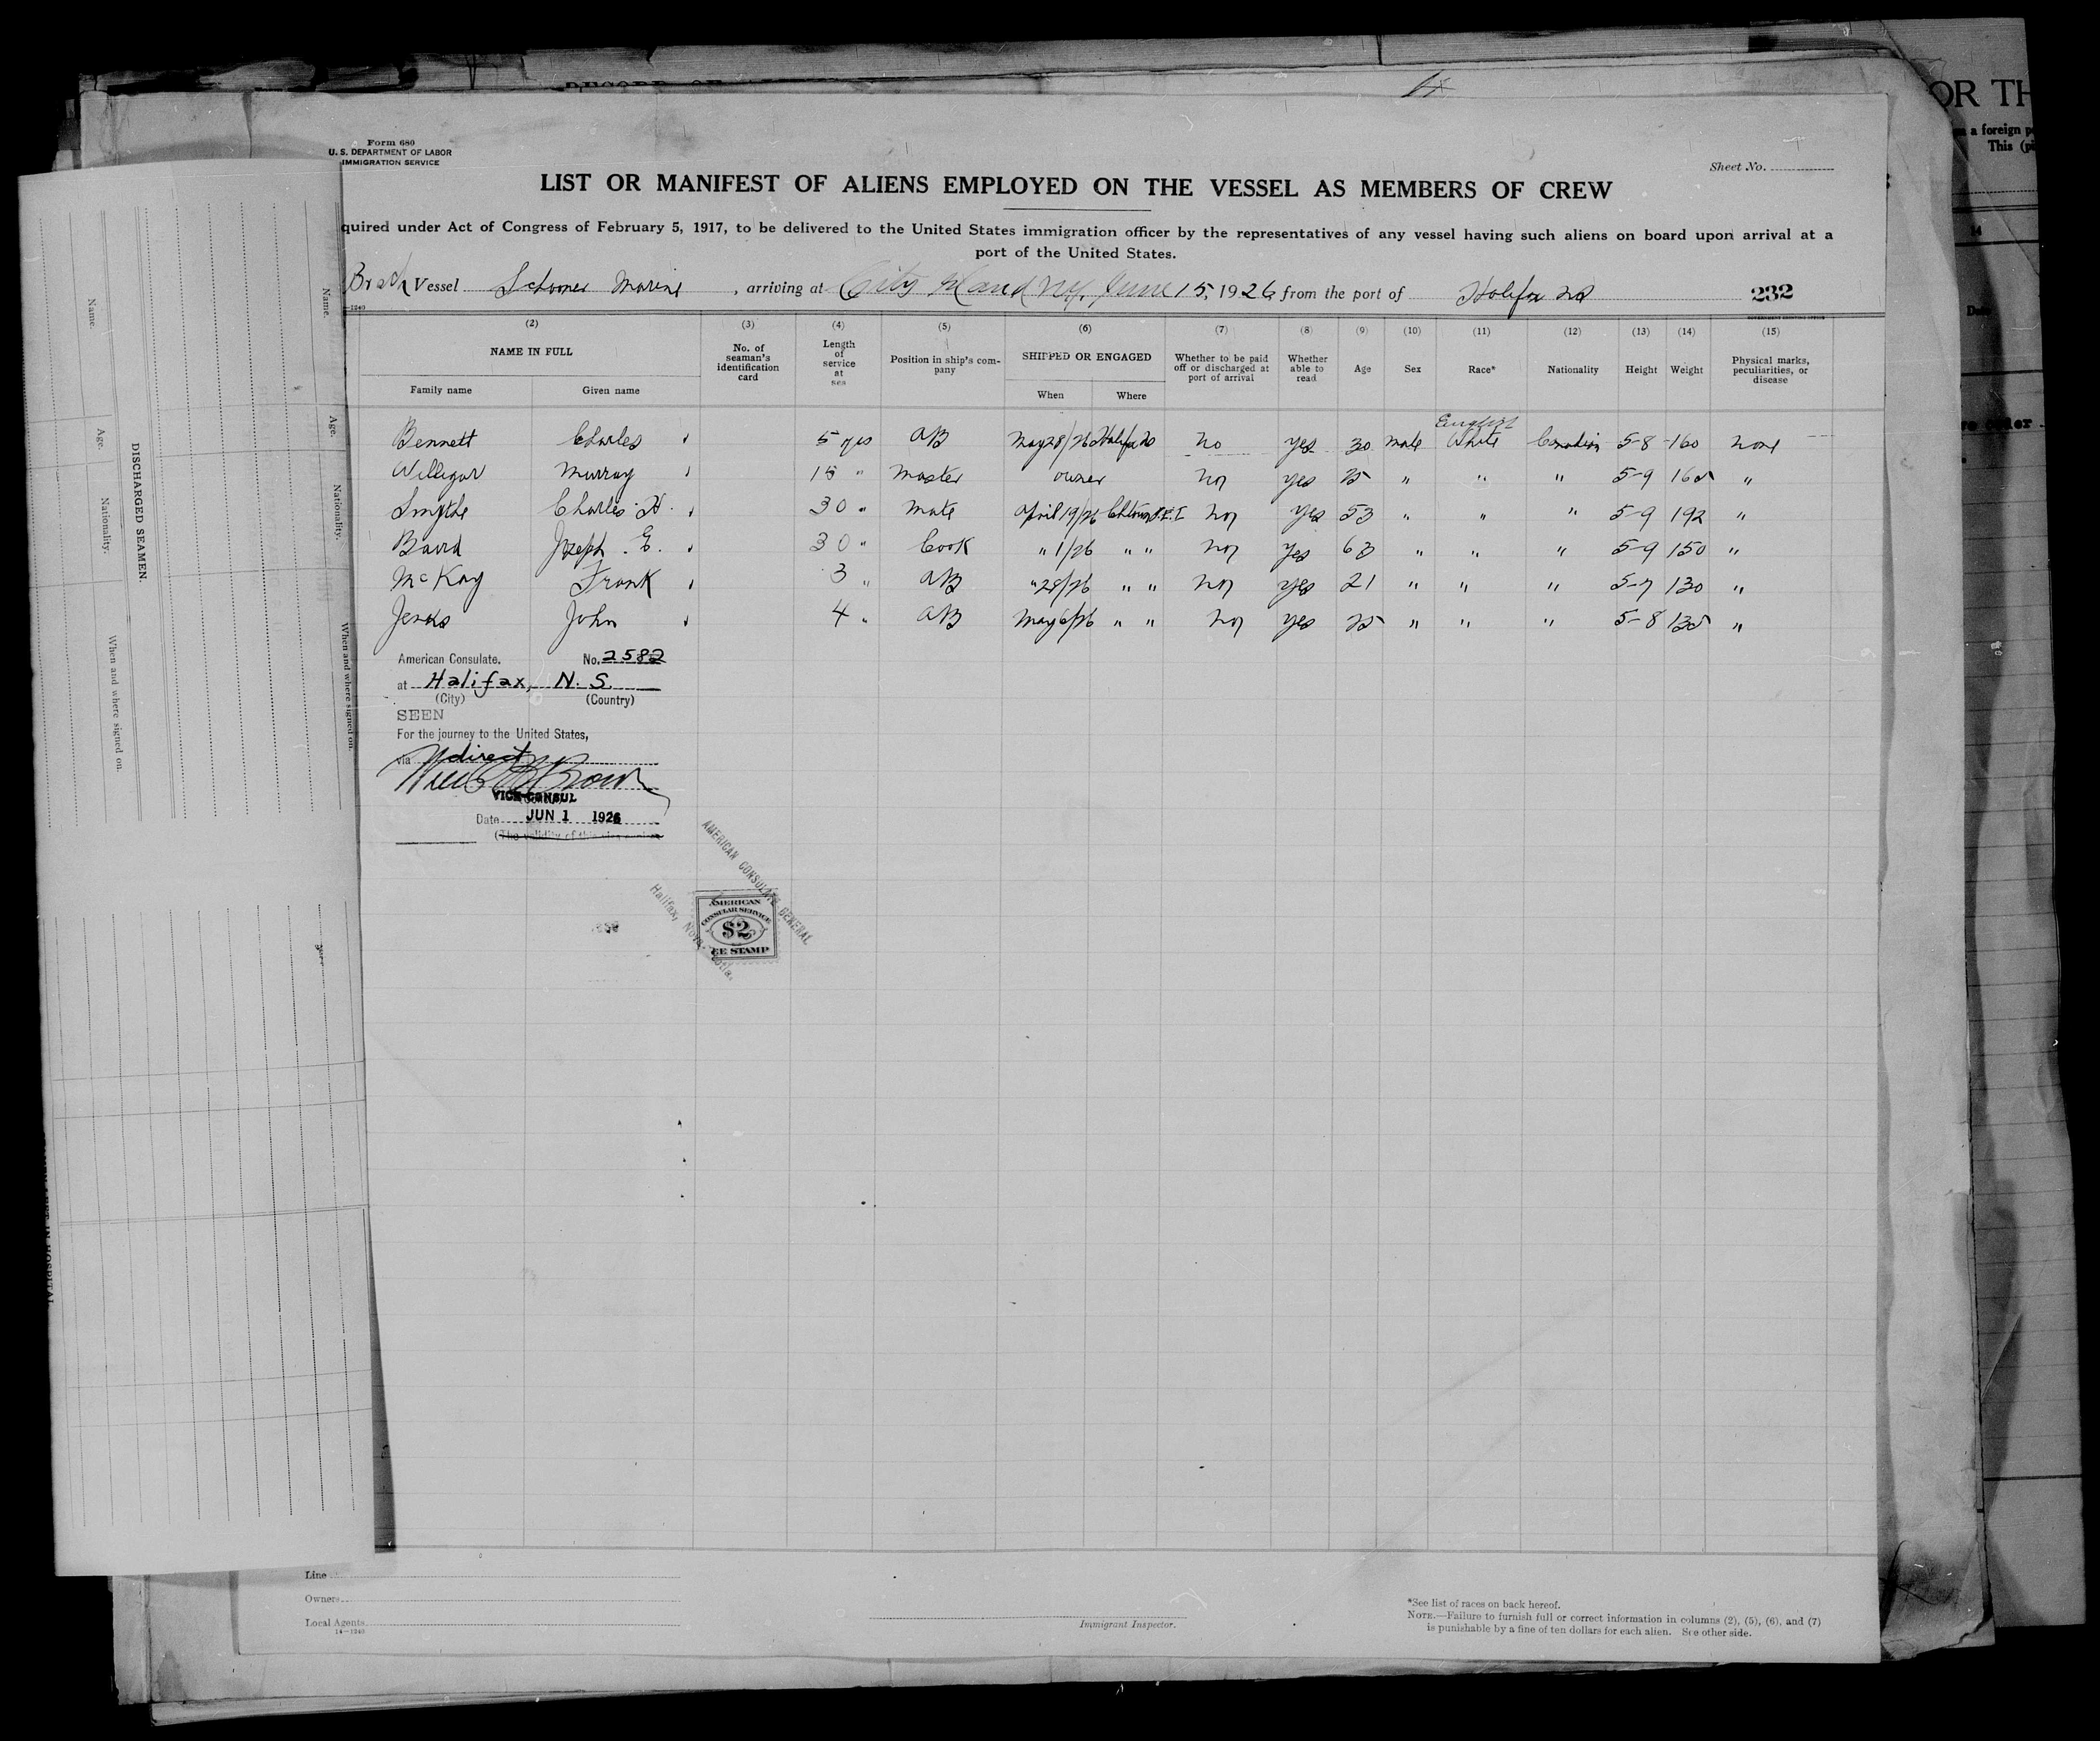 Form 680
U. S. DEPARTMENT OF LABOR
IMMIGRATION SERVICE
Sheet No.
LIST OR MANIFEST OF ALIENS EMPLOYED ON THE VESSEL AS MEMBERS OF CREW
quired under Act of Congress of February 5, 1917, to be delivered to the United States immigration officer by the representatives of any vessel having such aliens on board upon arrival at a
port of the United States.
Vessel Schooner Marine, arriving at City Island NY, June 15, 1926, from the port of Halifax NS 232
(2) (3) (4) (5) (6) (7) (8) (9) (10) (11) (12) (13) (14) (15)
NAME IN FULL
Family name Given name
No. of seaman's identification card
Length of service at sea
Position in ship's company
SHIPPED OR ENGAGED
When Where
Whether to be paid off or discharged at port of arrival
Whether able to read
Age
Sex
Race*
Nationality
Height
Weight
Physical marks, peculiarities, or disease
English
Bennett Charles 5 yrs AB May 28/26 Halifax NS no yes 30 male White Canadian 5-8 160 none
Willigar Murray 15 " Master owner no yes 25 " " " 5-9 165 "
Smythe Charles H. 30 " Mate April 19/26 Chtown P.E.I no yes 53 " " " 5-9 192 "
Baird Joseph E. 30 " Cook " 1/26 " " no yes 63 " " " 5-9 150 "
McKay Frank 3 " AB " 28/26 " " no yes 21 " " " 5-7 130 "
Jenks John 4 " AB May 6/26 " " no yes 25 " " " 5-8 135 "
American Consulate, No. 2582
at Halifax, N. S.
(City) (Country)
SEEN
For the journey to the United States,
via direct
Brown
VICE CONSUL
Date JUN 1 1926
(The validity of this visa expires
AMERICAN CONSULATE GENERAL
Halifax, Nova Scotia.
AMERICAN
CONSULAR SERVICE
$2
FEE STAMP
Line
Owners
Local Agents
14—1240
Immigrant Inspector.
*See list of races on back hereof.
NOTE.—Failure to furnish full or correct information in columns (2), (5), (6), and (7)
is punishable by a fine of ten dollars for each alien. See other side.
DISCHARGED SEAMEN.
Name. Age. Nationality. When and where signed on.
Name. Age. Nationality. When and where signed on.
OR TH
a foreign p
This (pi
14